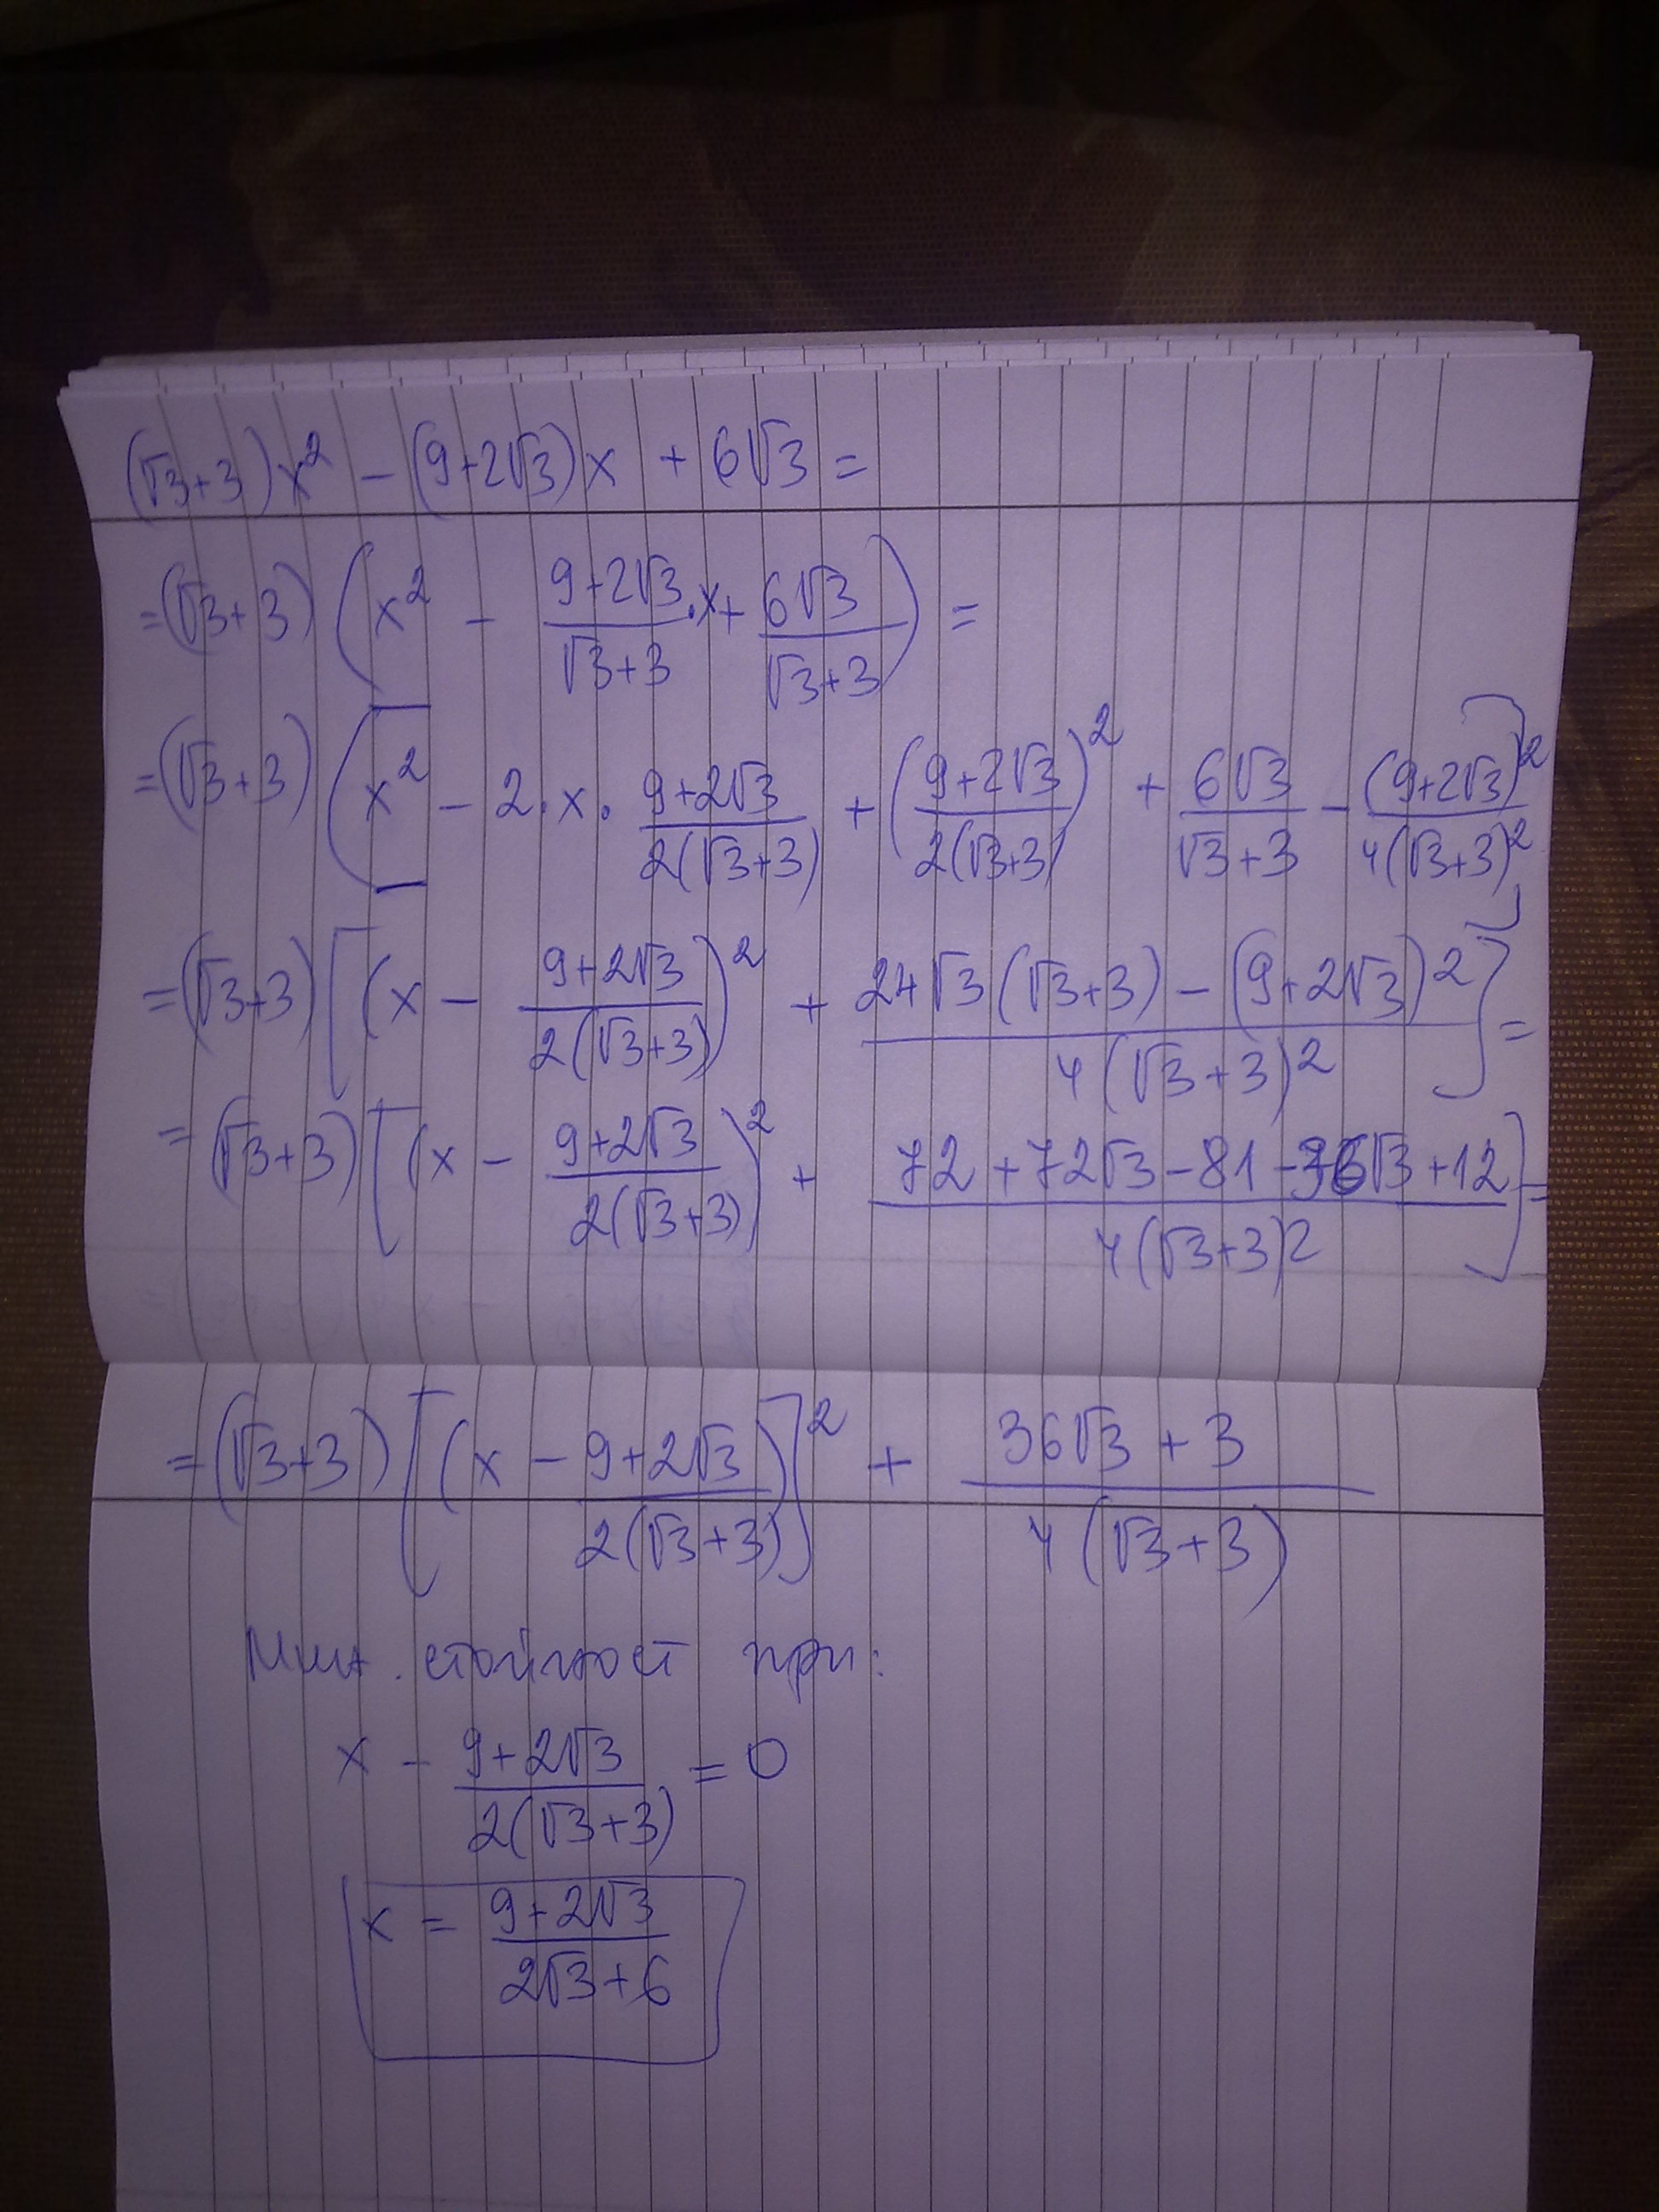 (√3+3)x² - (9+2√3)x + 6√3 =
=(√3+3) (x² - (9+2√3)/(√3+3) · x + 6√3/(√3+3)) =
=(√3+3) [x² - 2·x· (9+2√3)/(2(√3+3)) + ((9+2√3)/(2(√3+3)))² + 6√3/(√3+3) - (9+2√3)²/(4(√3+3)²)]
=(√3+3) [(x - (9+2√3)/(2(√3+3)))² + (24√3(√3+3) - (9+2√3)²)/(4(√3+3)²)] =
= (√3+3) [(x - (9+2√3)/(2(√3+3)))² + (72+72√3-81-36√3+12)/(4(√3+3)²)] =
=(√3+3) [(x - (9+2√3)/(2(√3+3)))]² + (36√3+3)/(4(√3+3))
Мин. стойност при:
x - (9+2√3)/(2(√3+3)) = 0
x = (9+2√3)/(2√3+6)